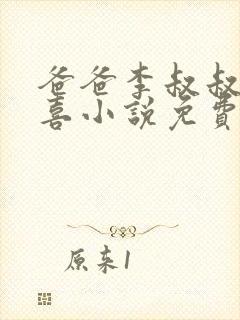 爸爸李叔叔
喜小說免費
原来1